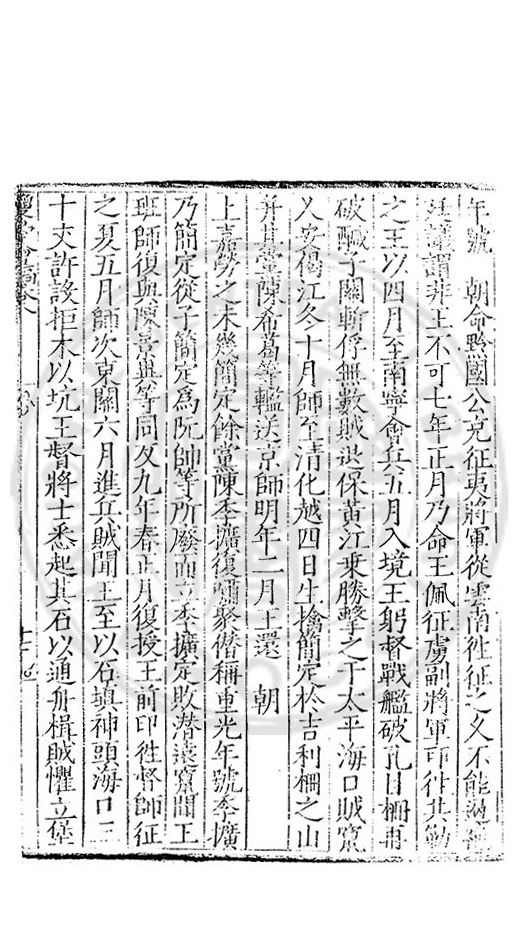 年號　朝命黔國公充征夷將軍從雲南徃征之久不能
廷議謂非王不可七年正月乃命王佩征虜副將軍印徃其勦
之王以四月至南寧會兵五月入境王躬督戰艦破孔目柵再
破鹹子關斬俘無數賊退保黃江乗勝擊之于太平海口賊竄
乂安偈江冬十月師至清化越四日生擒簡定於吉利柵之山
并其黨陳希葛等轞送京師明年二月王還　朝
上嘉勞之未幾簡定餘黨陳季擴復嘯聚僣稱重光年號季擴
乃簡定從子簡定為阮帥等所廢而立季擴定敗潜遠竄聞王
班師復與陳景异等同反九年春正月復授王前印徃督師征
之夏五月師次東關六月進兵賊聞王至以石填神頭海口三
十丈許設拒木以坑王督將士悉起其石以通舟楫賊懼立堡